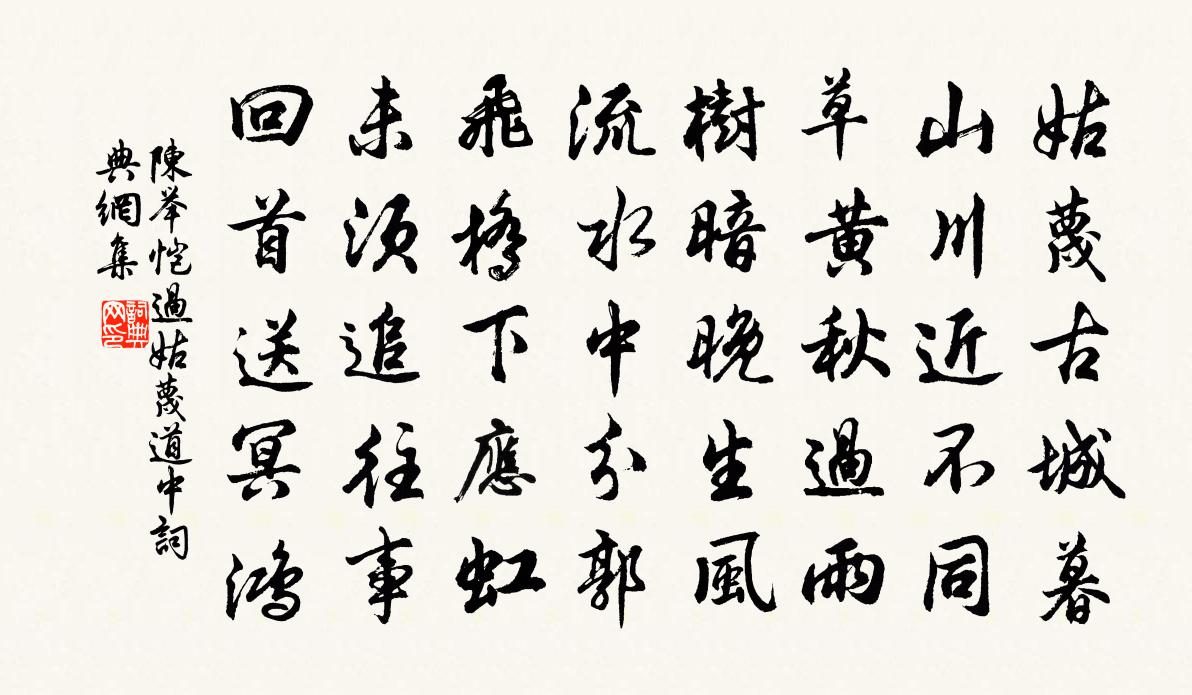 姑蔑古城暮
山川近不同
草黃秋過雨
樹暗晚生風
流水中分郭
飛橋下應虹
未須追往事
回首送冥鴻
陳舉愷過姑蔑道中詞
典網集
詞典
网印